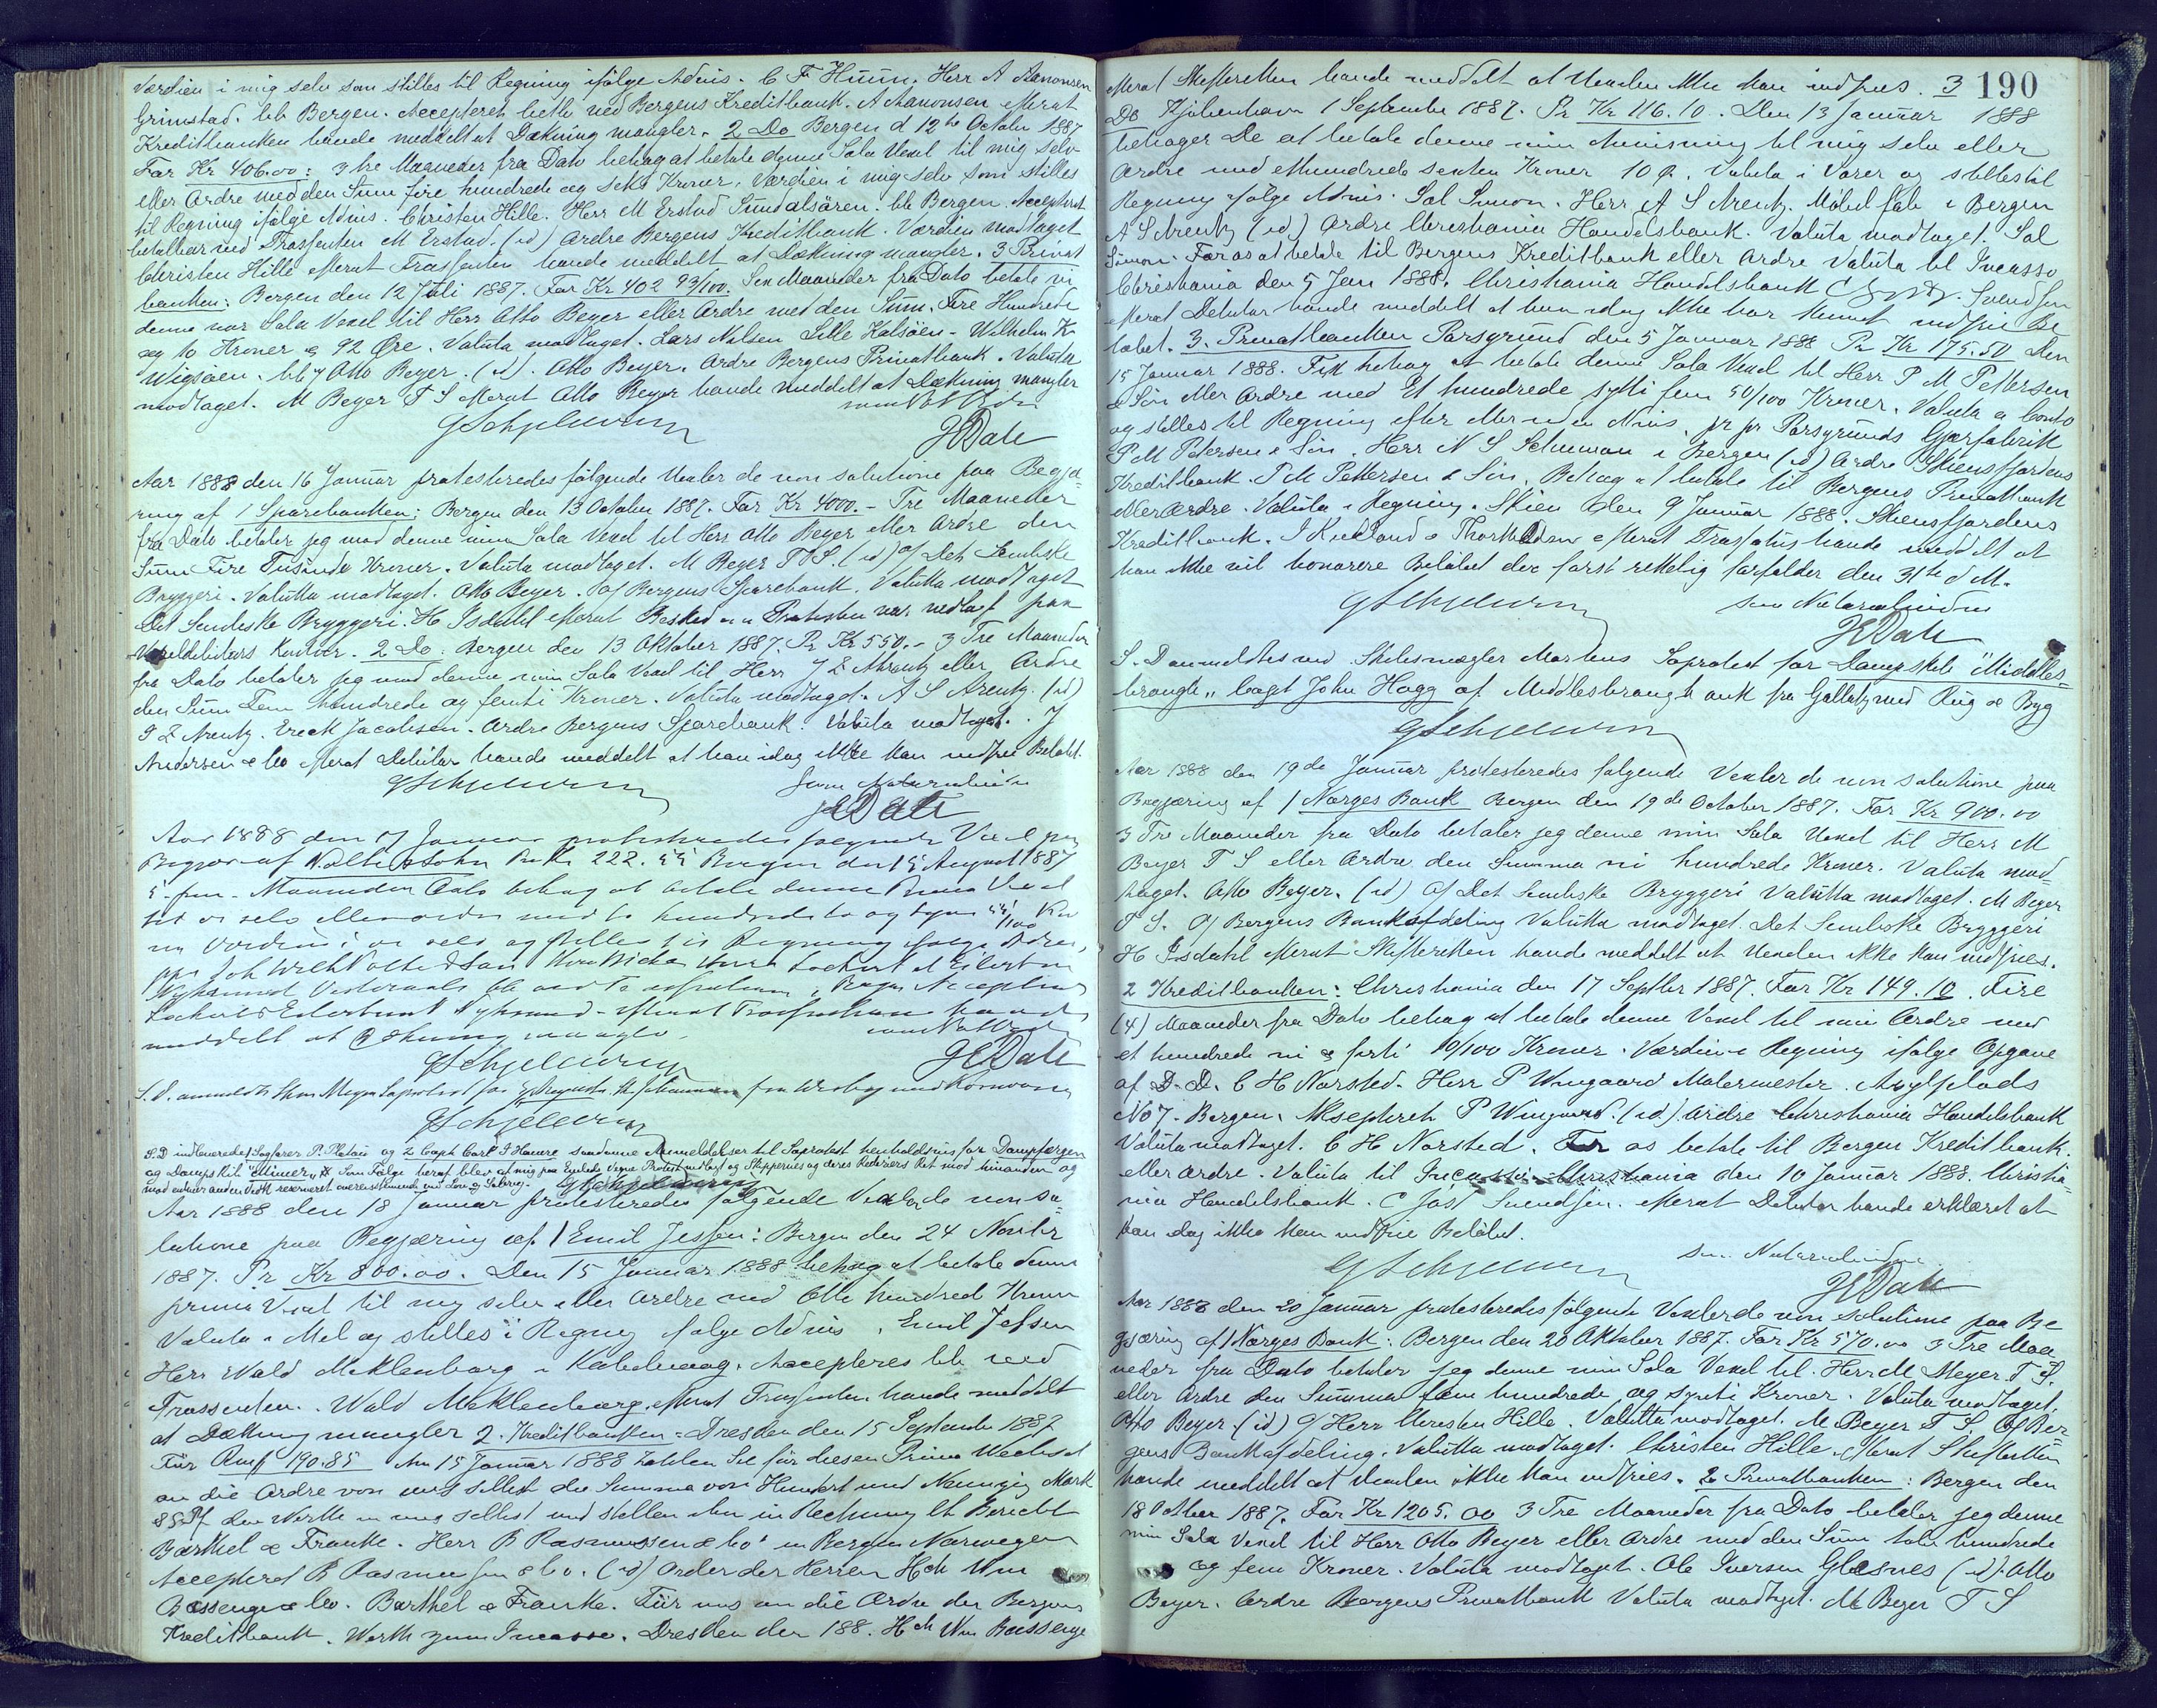 Værdien i mig selv som stilles til Regning ifølge Advis. C F Huun. Herr A Aanonsen
Grimstad. blt Bergen. Accepteret betlb ved Bergens Kreditbank. A Aanonsen efterat
Kreditbanken havde meddelt at Dækning mangler. 2 Do Bergen d 12te October 1887
For Kr 406.00: 3 tre Maaneder fra Dato behag at betale denne Sola Vexel til mig selv
eller Ordre med den Sum fire hundrede og seks Kroner. Værdien i mig selv som stilles
til Regning ifølge Advis. Christen Hille. Herr M Erstad Sundalsören. blt Bergen. Accepteret
betalbar ved Trassenten M Erstad. (id) Ordre Bergens Kreditbank. Værdien modtaget
Christen Hille efterat Trassenten havde meddelt at Dækning mangler. 3 Privat
banken: Bergen den 12 Juli 1887. For Kr 402 92/100. Sex Maaneder fra Dato betale vi
denne vor Sola Vexel til Herr Otto Beyer eller Ordre med den Sum. Fire Hundrede
og to Kroner & 92 Øre. Valuta modtaget. Lars Nelsen Lille Kalsöen - Wilhelm K
Wigsöen. blt % Otto Beyer. (id). Otto Beyer. Ordre Bergens Privatbank. Valuta
modtaget. M Beyer T S efterat Otto Beyer havde meddelt at Dækning mangler
GSchjelderup
JEDahl
Aar 1888 den 16 Januar protesteredes følgende Vexler de non solutione paa Begjæ-
ring af 1 Sparebanken: Bergen den 13 October 1887. For Kr 4000. - Tre Maaneder
fra Dato betaler jeg mod denne min Sola Vexel til Herr Otto Beyer eller Ordre den
Sum Fire Tusinde Kroner. Valuta modtaget. M Beyer T S. (id) o/ Det Sembske
Bryggeri. Valutta modtaget. Otto Beyer. o/ Bergens Sparebank. Valutta modtaget
Det Sembske Bryggeri. H Isdahl efterat Besked om Protesten var nedlagt paa
Vexeldebitors Kontor. 2 Do: Bergen den 13 Oktober 1887. Pr Kr 550.- 3 Tre Maaneder
fra Dato betaler jeg mod denne min Sola Vexel til Herr J Z Arentz eller Ordre
den Sum Fem hundrede og femti Kroner. Valuta modtaget. A S Arentz. (id)
J Z Arentz. Ereck Jacobsen. Ordre Bergens Sparebank. Valuta modtaget. J
Andersen & Co efterat Debitor havde meddelt at han idag ikke kan indfrie Beløbet.
GSchjelderup
som Notarialvidne
JEDahl
Aar 1888 den 17 Januar protesteredes følgende Vexel paa
Begjær af Nolte & Sohn Pr Kr 222.55 Bergen den 15 August 1887
5 fem Maaneder Dato behag at betale denne Prima Vexel
til os selv eller ordre med to hundrede to og tyve 55/100 Kro
ner Værdien i os selv og stilles til Regning ifølge Advis,
meddelt at Dækning mangler
GSchjelderup
JEDahl
GSchjelderup
S.D indleverede 1 Lodser P. Platou og 2 Capt Carl J Hamre saadanne Anmeldelser til Søprotest henholdsvis for Dampfærgen
og Dampskib "Mimer" Som Følge heraf blev af mig paa Embeds Vegne Protest nedlagt og Skippernes og deres Rederiers Ret mod hinanden og
mod enhver anden Vedk reserveret overensstemmende med Lov og Sædvane. GSchjelderup
Aar 1888 den 18 Januar protesteredes følgende Vexler de non so-
lutione paa Begjæring af. 1 Emil Jessen: Bergen den 24 Novbr
1887. Pr Kr 800.00. Den 15 Januar 1888 behag at betale denne
prima Vexel til mig selv eller Ordre med Otte hundrede Kroner
Valuta i Mel og stilles i Regng ifølge Advis. Emil Jessen
Herr Wald Meklenborg i Kabelvaag. Accepteres blt ved
Trassenten. Wald Meklenborg. efterat Trassenten havde meddelt
at Dækning mangler 2. Kreditbanken: Dresden den 15 September 1887
Für Rmf 190.85 Am 15 Januar 1888 zahlen Sie für diesen Prima Wechsel
an die Ordre von uns selbst die Summe von Hundert und Neunzig Mark
85 Pf den Werth in uns selbst und stellen ihn in Rechnung lt Bericht
Barthel & Franke. Herr B Rasmussen & Co in Bergen Norwegen
Accepteret B Rasmussen & Co. (id) Order der Herren Hch Wm
Bassenge & Co. Barthel & Franke. Für uns an die Ordre der Bergens
Kreditbank. Werth zum Incasso. Dresden den 188. Hch Wm Bassenge
190
efterat Skifteretten havde meddelt at Vexelen ikke kan indfries. 3
Do Kjøbenhavn 1 September 1887. Pr Kr 116.10. Den 13 Januar 1888
behager De at betale denne min Anvisning til mig selv eller
Ordre med ethundrede sexten Kroner 10 Ø. Valuta i Varer og stilles til
Regning ifølge Advis. Sal Simon. Herr A S Arentz. Møbelfab i Bergen
A S Arentz (id) Ordre Christiania Handelsbank. Valuta modtaget. Sal
Simon. For os at betale til Bergens Kreditbank eller Ordre Valuta til Incasso
Christiania den 5 Jan 1888. Christiania Handelsbank C Svendsen
efterat Debitor havde meddelt at han idag ikke har kunnet indfrie Be
løbet. 3. Privatbanken Porsgrund den 5 Januar 1888 Pr Kr 175.50 Den
15 Januar 1888. behag at betale denne Sola Vexel til Herr P M Pettersen
& Søn eller Ordre med Et hundrede sytti fem 50/100 Kroner. Valuta a Conto
og stilles til Regning efter eller uden Advis. pr pr Porsgrunds Gjærfabrik
P M Petersen & Søn. Herr N S Schuman i Bergen (id) Ordre Skiensfjordens
Kreditbank. P M Pettersen & Søn. Behag at betale til Bergens Privatbank
eller Ordre. Valuta i Regning. Skien den 9 Januar 1888. Skiensfjordens
Kreditbank. efterat Trassatus havde meddelt at
han ikke vil honorere Beløbet der først rettelig forfalder den 31te d M.
GSchjelderup
som Notarialvidne
JEDahl
S. D anmeldtes ved Skibsmægler Martens Søprotest for Dampskib "Middles-
brough" bragt John Hogg af Middlesbrough ank fra Gallatz med Rug & Byg
GSchjelderup
Aar 1888 den 19de Januar protesteredes følgende Vexler de non solutione paa
Begjæring af 1 Norges Bank Bergen den 19de October 1887. For Kr 900.00
3 Tre Maaneder fra Dato betaler jeg denne min Sola Vexel til Herr M
Beyer T S eller Ordre den Summa ni hundrede Kroner. Valuta mod-
taget. Otto Beyer. (id) O/ Det Sembske Bryggeri Valutta modtaget. M Beyer
T S. O/ Bergens Bankafdeling Valutta modtaget. Det Sembske Bryggeri
H Isdahl efterat Skifteretten havde meddelt at Vexelen ikke kan indfries.
2 Kreditbanken: Christiania den 17 Septbr 1887. For Kr 149.10. Fire
(4) Maaneder fra Dato behag at betale denne Vexel til min Ordre med
et hundrede ni & førti 10/100 Kroner. Værdien i Regning ifølge Opgave
af D.D. C H Norsted. Herr P Wingaard Malermester. Asylplads
No 7. Bergen. Akseptert P Wingaard. (id) Ordre Christiania Handelsbank
Valuta modtaget. C H Norsted. For os betale til Bergen Kreditbank.
eller Ordre. Valuta til Incasso. Christiania den 10 Januar 1888. Christia-
nia Handelsbank. C Jost Svendsen. efterat Debitor havde erklæret at
han idag ikke kan indfrie Beløbet.
GSchjelderup
som Notarialvidne
JEDahl
Aar 1888 den 20 Januar protesteredes følgende Vexler de non solutione paa Be
gjæring af 1 Norges Bank: Bergen den 20 Oktober 1887. For Kr 570.00 3 Tre Maa
neder fra Dato betaler jeg denne min Sola Vexel til Herr M Meyer T S.
eller Ordre den Summa fem hundrede og sytti Kroner. Valuta modtaget.
Otto Beyer (id) O/ Herr Christen Hille. Valutta modtaget. M Beyer T S. O/ Ber-
gens Bankafdeling. Valutta modtaget. Christen Hille. efterat Skifteretten
havde meddelt at Vexelen ikke kan indfries. 2 Privatbanken: Bergen den
18 Octber 1887. For Kr 1205.00 3 Tre Maaneder fra Dato betaler jeg denne
min Sola Vexel til Herr Otto Beyer eller Ordre med den Sum tolv hundrede
og fem Kroner. Valuta modtaget. Ole Iversen Glesnes (id). Otto
Beyer. Ordre Bergens Privatbank Valuta modtaget. M Beyer T S